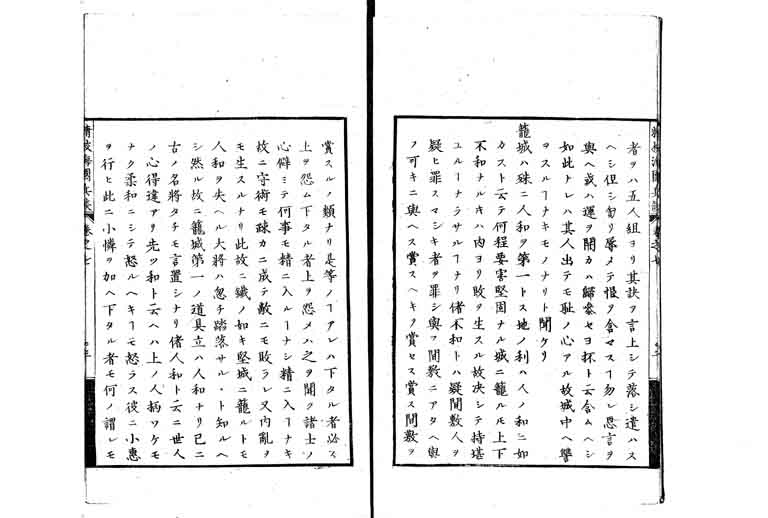 者ヲハ五人組ヨリ其訣ヲ言上シテ落シ遣ハス
ヘシ但シ匄リ辱メテ慢ヲ含セスヿ勿レ思言ヲ
與ヘ或ハ運ヲ開カハ歸參セヨ抔ト云含ムヘシ
如此ナレハ其人出テモ耻ノ心アル故城中ヘ讐
ヲスルヿナキモノナリト聞ケリ
籠城ハ殊ニ人和ヲ第一トス地ノ利ハ人ノ和ニ如
カスト云テ何程要害堅固ナル城ニ籠ルモ上下
不和ナルキハ内ヨリ敗ヲ生スル故决シテ持堪
ユルヿナラサルヿナリ偖不和トハ疑間數人ヲ
疑ヒ罪スマシキ者ヲ罪シ與フ間敷ニアタヘ與
フ可キニ與ヘス賞スヘキヲ賞セス賞ス間數ヲ
精校海國兵談 卷之七
賞スルノ類ナリ是等ノヿアレハ下タル者必ス
上ヲ怨ム下タル者上ヲ怨メハ之ヲ聞ク諸士ノ
心僻ミテ何事モ精ニ入ルヿナシ精ニ入ヿナキ
故ニ守術モ疎カニ成テ敵ニモ敗ラレ又内亂ヲ
モ生スルナリ此故ニ鐵ノ如キ堅城ニ籠ルトモ
人和ヲ失ヘル大將ハ忽チ踏落サル丶ト知ルヘ
シ然ル故ニ籠城第一ノ道具立ハ人和ナリ已ニ
古ノ名將タチモ言置シナリ偖人和ト云ニ世人
ノ心得違アリ先ツ和ト云ヘハ上ノ人柄ツケモ
ナク柔和ニシテ怒ルヘキヿーモ怒ラス彼ニ小惠
ヲ行ヒ此ニ小憐ヲ加ヘ下タル者モ何ノ謂レモ
精校海國兵談 卷之七